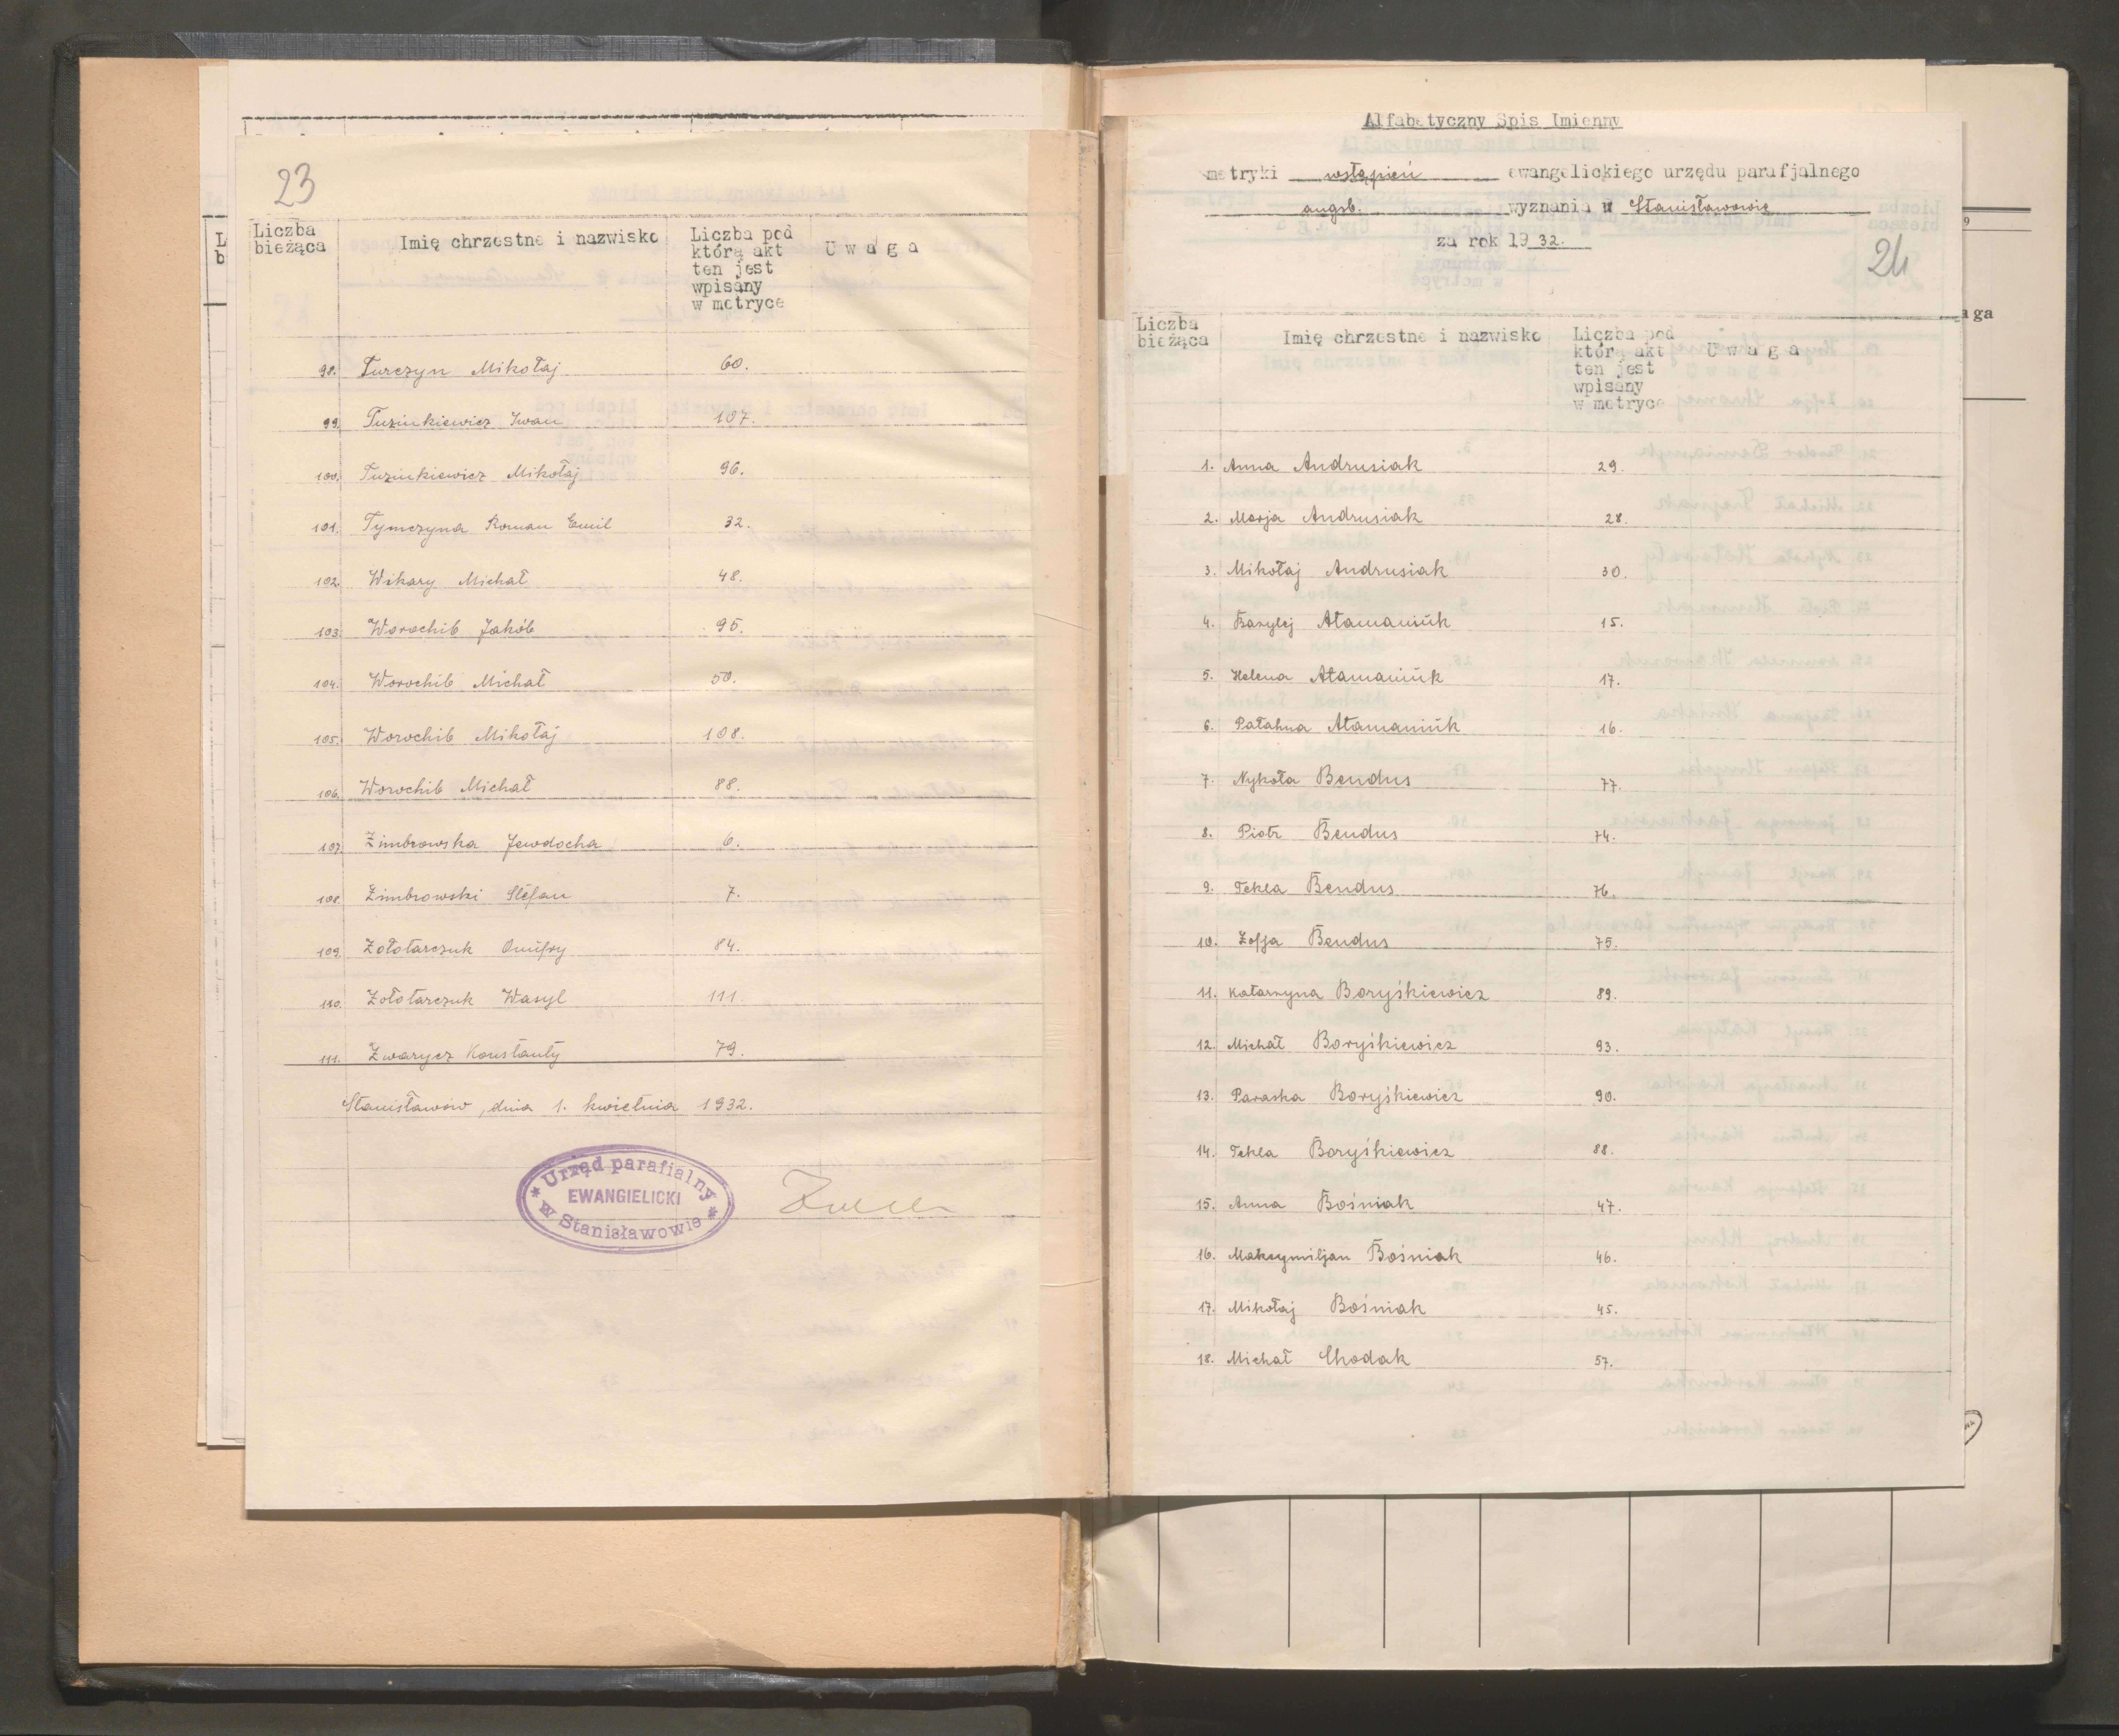 23
Liczba bieżąca
Imię chrzestne i nazwisko
Liczba pod którą akt ten jest wpisany w metryce
Uwaga
98. Turczyn Mikołaj 60.
99. Tuzinkiewicz Iwan 107.
100. Tuzinkiewicz Mikołaj 96.
101. Tymczyna Roman Emil 32.
102. Wikary Michał 48.
103. Worochib Jakób 95.
104. Worochib Michał 50.
105. Worochib Mikołaj 108.
106. Worochib Michał 88.
107. Zimbrowska Jewdocha 6.
108. Zimbrowski Stefan 7.
109. Zołotarczuk Onufry 84.
110. Zołotarczuk Wasyl 111.
111. Zwarycz Konstanty 79.
Stanisławów, dnia 1. kwietnia 1932.
Urząd parafialny
EWANGIELICKI
w Stanisławowie
Alfabetyczny Spis Imienny
metryki wstąpień ewangelickiego urzędu parafjalnego
augsb. wyznania w Stanisławowie
za rok 1932.
24
Liczba bieżąca
Imię chrzestne i nazwisko
Liczba pod którą akt ten jest wpisany w metryce
Uwaga
1. Anna Andrusiak 29.
2. Marja Andrusiak 28.
3. Mikołaj Andrusiak 30.
4. Bazylej Atamaniuk 15.
5. Helena Atamaniuk 17.
6. Pałahna Atamaniuk 16.
7. Nykoła Bendus 77.
8. Piotr Bendus 74.
9. Tekla Bendus 76.
10. Zofja Bendus 75.
11. Katarzyna Boryśkiewicz 89.
12. Michał Boryśkiewicz 93.
13. Paraska Boryśkiewicz 90.
14. Tekla Boryśkiewicz 88.
15. Anna Bośniak 47.
16. Maksymiljan Bośniak 46.
17. Mikołaj Bośniak 45.
18. Michał Chodak 57.
9
aga